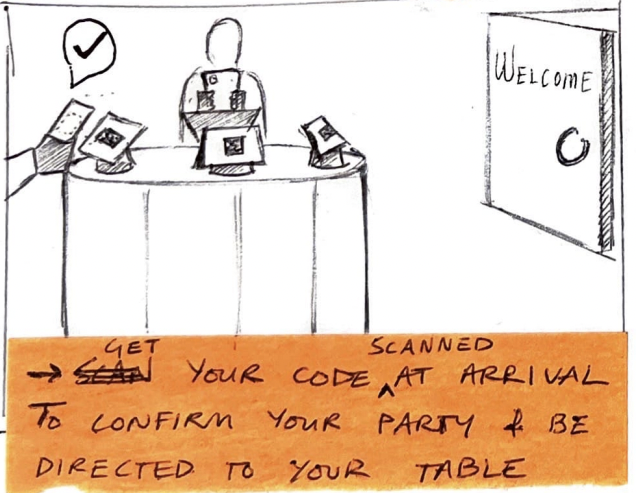 WELCOME
→ GET YOUR CODE SCANNED AT ARRIVAL
TO CONFIRM YOUR PARTY & BE
DIRECTED TO YOUR TABLE